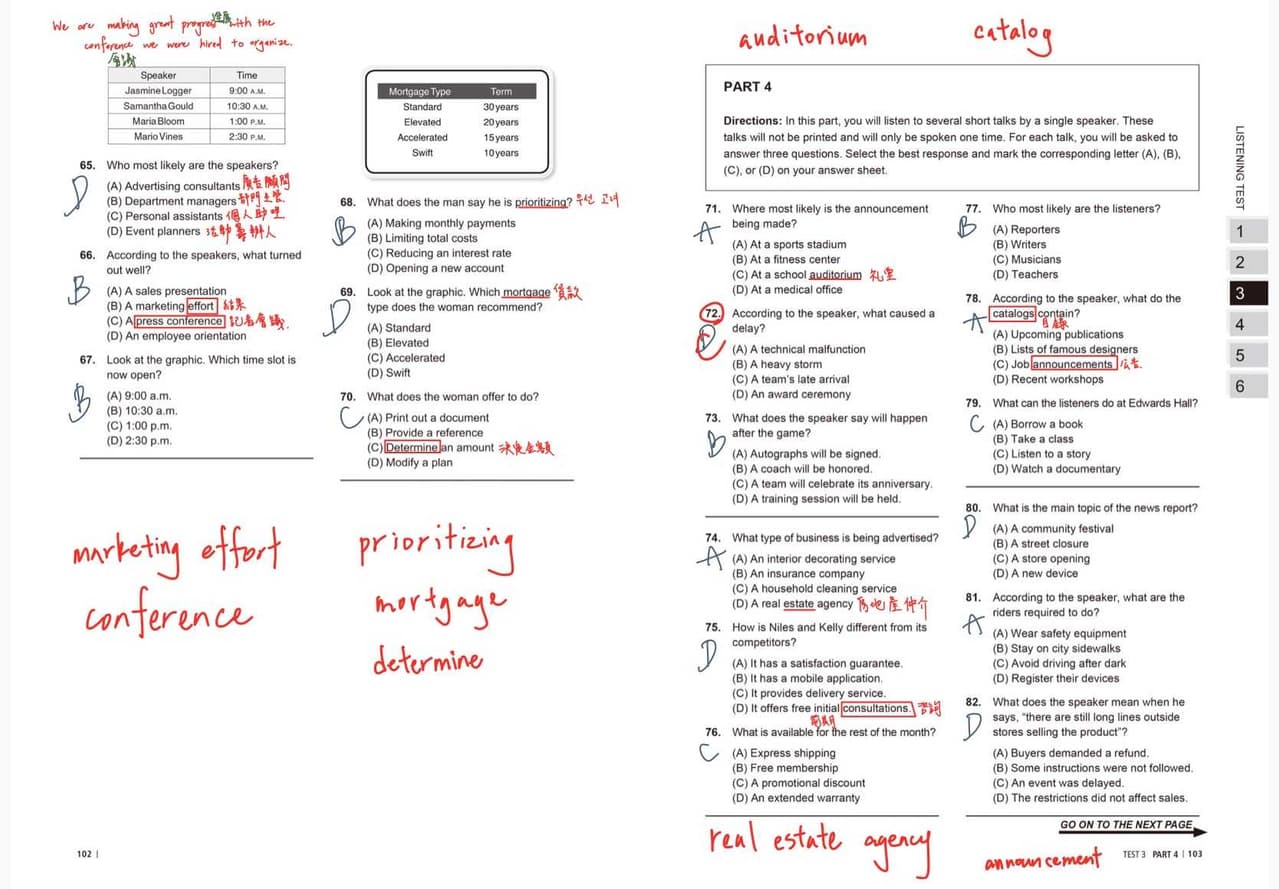 We are making great progress with the
進展
conference we were hired to organize.
會議
Speaker Time
Jasmine Logger 9:00 A.M.
Samantha Gould 10:30 A.M.
Maria Bloom 1:00 P.M.
Mario Vines 2:30 P.M.
65. Who most likely are the speakers?
D
(A) Advertising consultants 廣告顧問
(B) Department managers 部門主管
(C) Personal assistants 個人助理
(D) Event planners 活動籌辦人
66. According to the speakers, what turned
out well?
B
(A) A sales presentation
(B) A marketing effort 結果
(C) A press conference 記者會議
(D) An employee orientation
67. Look at the graphic. Which time slot is
now open?
B
(A) 9:00 a.m.
(B) 10:30 a.m.
(C) 1:00 p.m.
(D) 2:30 p.m.
marketing effort
conference
102 |
Mortgage Type Term
Standard 30 years
Elevated 20 years
Accelerated 15 years
Swift 10 years
68. What does the man say he is prioritizing? 우선 고려
B
(A) Making monthly payments
(B) Limiting total costs
(C) Reducing an interest rate
(D) Opening a new account
69. Look at the graphic. Which mortgage 貸款
type does the woman recommend?
D
(A) Standard
(B) Elevated
(C) Accelerated
(D) Swift
70. What does the woman offer to do?
C
(A) Print out a document
(B) Provide a reference
(C) Determine an amount 決定金額
(D) Modify a plan
prioritizing
mortgage
determine
auditorium
catalog
PART 4
Directions: In this part, you will listen to several short talks by a single speaker. These
talks will not be printed and will only be spoken one time. For each talk, you will be asked to
answer three questions. Select the best response and mark the corresponding letter (A), (B),
(C), or (D) on your answer sheet.
71. Where most likely is the announcement
being made?
A
(A) At a sports stadium
(B) At a fitness center
(C) At a school auditorium 礼堂
(D) At a medical office
72. According to the speaker, what caused a
delay?
C
(A) A technical malfunction
(B) A heavy storm
(C) A team's late arrival
(D) An award ceremony
73. What does the speaker say will happen
after the game?
B
(A) Autographs will be signed.
(B) A coach will be honored.
(C) A team will celebrate its anniversary.
(D) A training session will be held.
74. What type of business is being advertised?
A
(A) An interior decorating service
(B) An insurance company
(C) A household cleaning service
(D) A real estate agency 房地產仲介
75. How is Niles and Kelly different from its
competitors?
D
(A) It has a satisfaction guarantee.
(B) It has a mobile application.
(C) It provides delivery service.
(D) It offers free initial consultations. 咨詢
初期
76. What is available for the rest of the month?
C
(A) Express shipping
(B) Free membership
(C) A promotional discount
(D) An extended warranty
real estate agency
77. Who most likely are the listeners?
B
(A) Reporters
(B) Writers
(C) Musicians
(D) Teachers
78. According to the speaker, what do the
catalogs contain?
目錄
A
(A) Upcoming publications
(B) Lists of famous designers
(C) Job announcements 広告
(D) Recent workshops
79. What can the listeners do at Edwards Hall?
C
(A) Borrow a book
(B) Take a class
(C) Listen to a story
(D) Watch a documentary
80. What is the main topic of the news report?
D
(A) A community festival
(B) A street closure
(C) A store opening
(D) A new device
81. According to the speaker, what are the
riders required to do?
A
(A) Wear safety equipment
(B) Stay on city sidewalks
(C) Avoid driving after dark
(D) Register their devices
82. What does the speaker mean when he
says, "there are still long lines outside
stores selling the product"?
D
(A) Buyers demanded a refund.
(B) Some instructions were not followed.
(C) An event was delayed.
(D) The restrictions did not affect sales.
GO ON TO THE NEXT PAGE
announcement
TEST 3 PART 4 | 103
LISTENING TEST
1
2
3
4
5
6